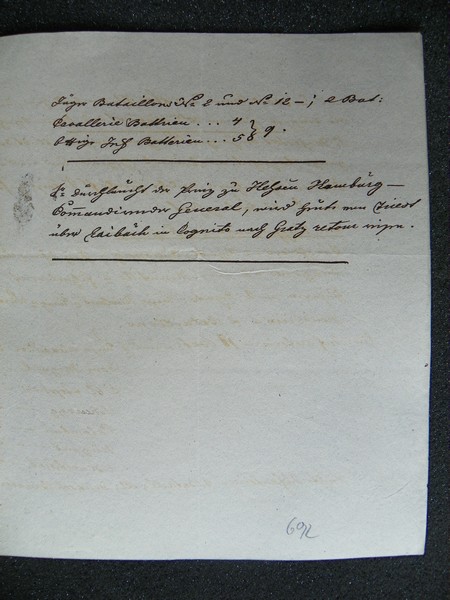 Jäger Bataillone No 2 und No 12 – ; 2 Bat:
Cavallerie Battrien . . . 4 } 9 .
Batterien . . . 5
Sr Durchlaucht der Prinz zu Hessen Hamburg –
Comandirender General, wird heute von
über Laibach in Cognito nach Gratz retour
692